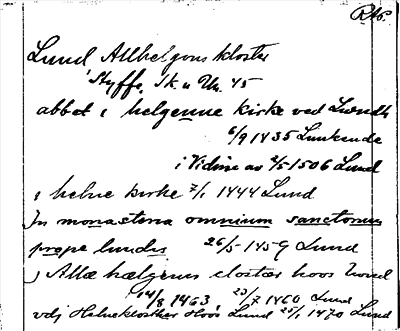 Lund Allhelgons kloster
Styffe, Sk. u Un. 45
abbot i helgenne kirke ved Lwndh
6/9 1435
i Vidime av 2/5 1506 Lund
i helne kirke 7/1 1444 Lund
In monasterio omnium sanctorum
prope lundis 26/5 1459 Lund
j Allæ hælgens closter hoos Lund
14/8 1463, 23/7 1460 Lund
vdj Helnekloster Hoos Lund 25/1 1470 Lund